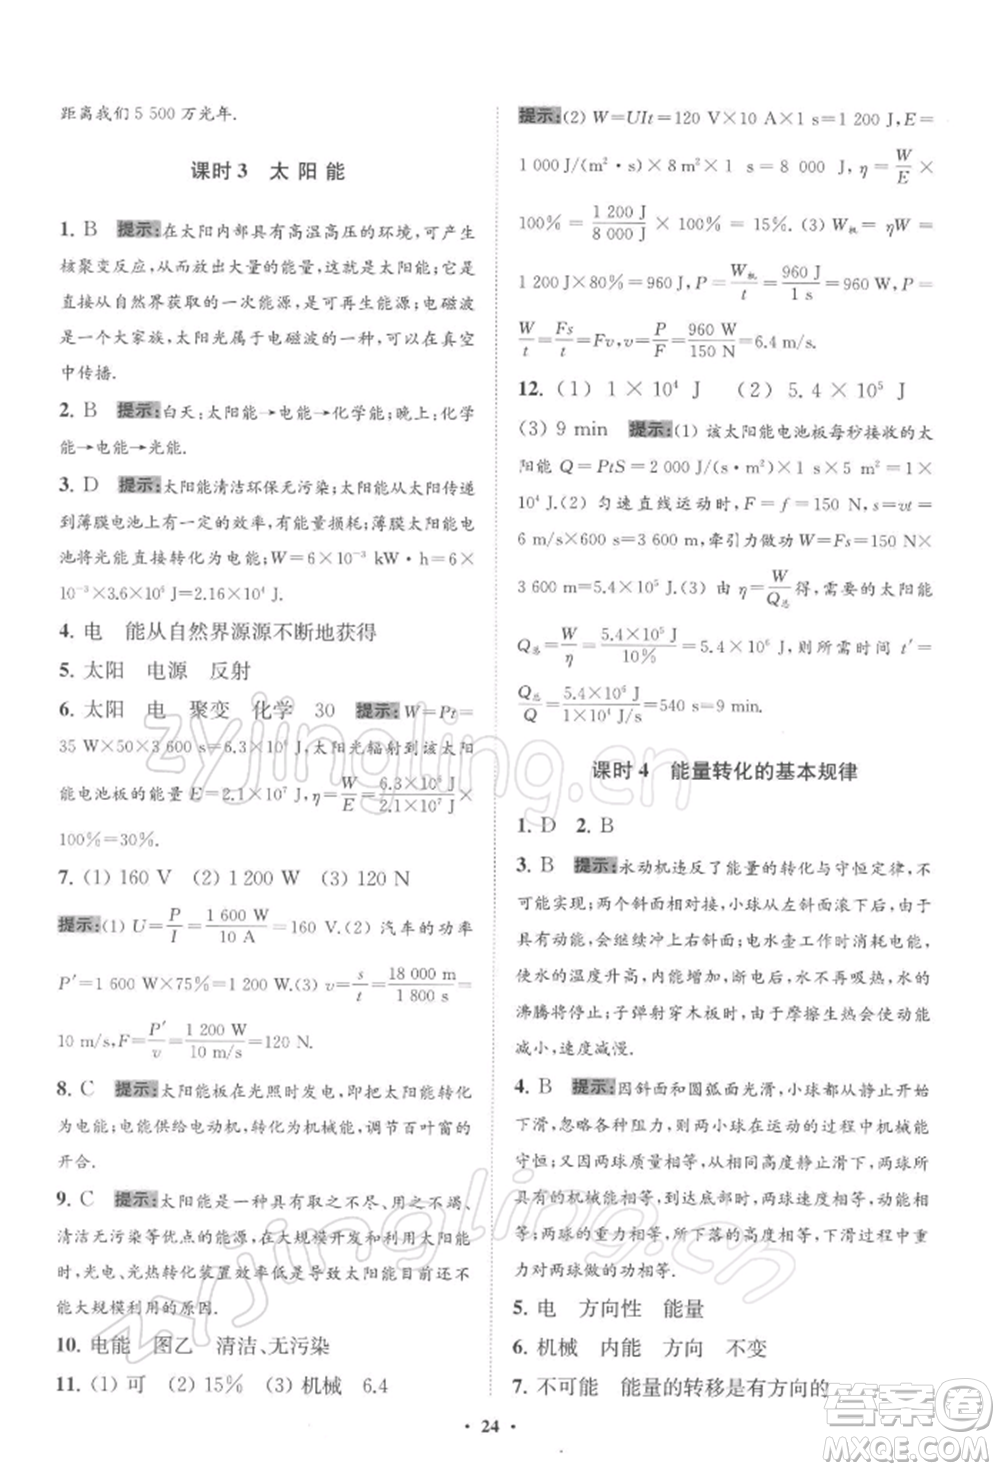 距离我们 5 500 万光年.
课时 3 太阳能
1. B 提示:在太阳内部具有高温高压的环境,可产生
核聚变反应,从而放出大量的能量,这就是太阳能;它是
直接从自然界获取的一次能源,是可再生能源;电磁波
是一个大家族,太阳光属于电磁波的一种,可以在真空
中传播.
2. B 提示:白天:太阳能→电能→化学能;晚上:化学
能→电能→光能.
3. D 提示:太阳能清洁环保无污染;太阳能传递
到薄膜电池上有一定的效率,有能量损耗;薄膜太阳能电
池将光能直接转化为电能;W=6×10⁻³ kW·h=6×
10⁻³×3.6×10⁶ J=2.16×10⁴ J.
4. 电 能从自然界源源不断地获得
5. 太阳 电源 反射
6. 太阳 电 聚变 化学 30 提示:W=Pt=
35 W×50×3 600 s=6.3×10⁶ J,太阳光辐射到该太阳
能电池板的能量 E=2.1×10⁷ J,η=W/E=6.3×10⁶ J/2.1×10⁷ J×
100%=30%.
7. (1) 160 V (2) 1 200 W (3) 120 N
提示:(1) U=P/I=1 600 W/10 A=160 V.(2) 汽车的功率
P′=1 600 W×75%=1 200 W.(3) v=s/t=18 000 m/1 800 s=
10 m/s,F=P′/v=1 200 W/10 m/s=120 N.
8. C 提示:太阳能板在光照时发电,即把太阳能转化为
电能;电能供给电动机,转化为机械能,调节百叶窗的
开合.
9. C 提示:太阳能是一种具有取之不尽、用之不竭、
清洁无污染等优点的能源,在大规模开发和利用太阳能
时,光电、光热转化装置效率低是导致太阳能目前还不
能大规模利用的原因.
10. 电能 图乙 清洁、无污染
11. (1) 可 (2) 15% (3) 机械 6.4
提示:(2) W=UIt=120 V×10 A×1 s=1 200 J,E=
1 000 J/(m²·s)×8 m²×1 s=8 000 J,η=W/E×
100%=1 200 J/8 000 J×100%=15%.(3) W机=ηW=
1 200 J×80%=960 J,P=W机/t=960 J/1 s=960 W,P=
W/t=Fs/t=Fv,v=P/F=960 W/150 N=6.4 m/s.
12. (1) 1×10⁴ J (2) 5.4×10⁵ J
(3) 9 min 提示:(1) 该太阳能电池板每秒接收的太
阳能 Q=PtS=2 000 J/(m²·s)×1 s×5 m²=1×
10⁴ J.(2) 匀速直线运动时,F=f=150 N,s=vt=
6 m/s×600 s=3 600 m,牵引力做功 W=Fs=150 N×
3 600 m=5.4×10⁵ J.(3) 由 η=W/Q总得,需要的太阳能
Q总=W/η=5.4×10⁵ J/10%=5.4×10⁶ J,所需时间 t′=
Q总/Q=5.4×10⁶ J/1×10⁴ J/s=540 s=9 min.
课时 4 能量转化的基本规律
1. D 2. B
3. B 提示:永动机违反了能量的转化与守恒定律,不
可能实现;两个斜面相对接,小球从左斜面滚下后,由于
具有动能,会继续冲上右斜面;电水壶工作时消耗电能,
使水的温度升高,内能增加,断电后,水不再吸热,水的
沸腾将停止;子弹射穿木板时,由于摩擦生热会使动能
减小,速度减慢.
4. B 提示:因斜面和圆弧面光滑,小球都从静止开始
下滑,忽略各种阻力,故两小球在运动的过程中机械能
守恒;又因两球质量相等,高度相等,静止滑下,两球所
具有的机械能相等,到达底端时,两球速度相等,动能相
等;两球的重力相等,所下落的高度相等,下滑过程中
重力对两球做的功相等.
5. 电 方向性 能量
6. 机械 内能 方向 不变
7. 不可能 能量的转移是有方向的
• 24 •
zyjingling.cn
zyjingling.cn
答案圈
MXQE.COM